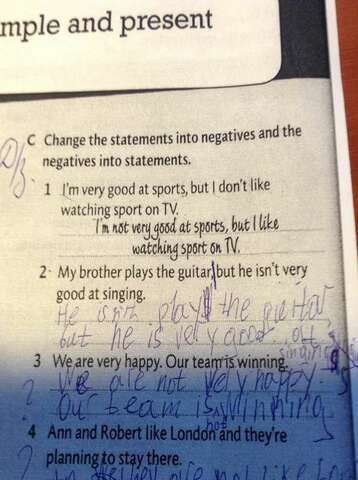 mple and present
D/z
C Change the statements into negatives and the
negatives into statements.
1 I'm very good at sports, but I don't like
watching sport on TV.
I'm not very good at sports, but I like
watching sport on TV.
2 My brother plays the guitar, but he isn't very
good at singing.
He isn't plays the guitar
but he is very good at
singing
3 We are very happy. Our team is winning.
? We are not very happy.
Our team is winning
not
4 Ann and Robert like London and they're
planning to stay there.
? they are not like